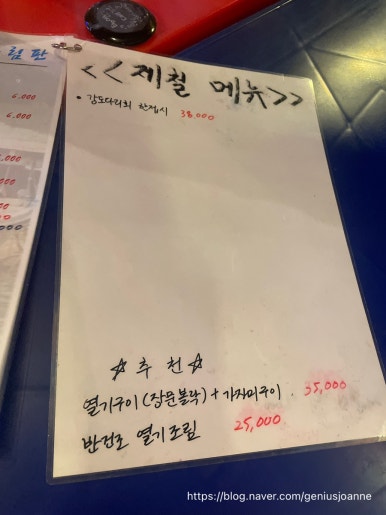 림판
6,000
6,000
<<제철 메뉴>>
• 강도다리회 한접시 38,000
☆ 추천 ☆
열기구이(장문볼락)+가자미구이 35,000
반건조 열기조림 25,000
https://blog.naver.com/geniusjoanne